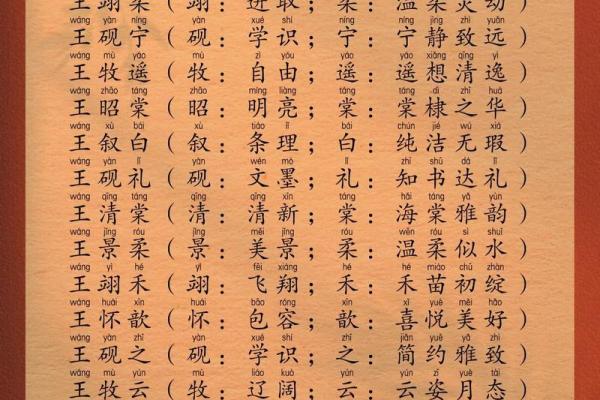 王翊柔（翊：进取；柔：温柔灵动
wáng yàn níng yàn xué shí níng níng jìng zhì yuǎn
王砚宁（砚：学识；宁：宁静致远）
wáng mù yáo mù zì yóu yáo yáo xiǎng qīng yì
王牧遥（牧：自由；遥：遥想清逸）
wáng zhāo táng zhāo míng liàng táng táng dì zhī huá
王昭棠（昭：明亮；棠：棠棣之华）
wáng xù bái xù tiáo lǐ bái chún jié wú xiá
王叙白（叙：条理；白：纯洁无瑕）
wáng yàn lǐ yàn wén mò lǐ zhī shū dá lǐ
王砚礼（砚：文墨；礼：知书达礼）
wáng qīng táng qīng qīng xīn táng hǎi táng yǎ yùn
王清棠（清：清新；棠：海棠雅韵）
wáng jǐng róu jǐng měi jǐng róu wēn róu sì shuǐ
王景柔（景：美景；柔：温柔似水）
wáng yì hé yì fēi xiáng hé hé miáo chū zhàn
王翊禾（翊：飞翔；禾：禾苗初绽）
wáng huái xīn huái bāo róng xīn xǐ yuè měi hǎo
王怀歆（怀：包容；歆：喜悦美好）
wáng yàn zhī yàn xué shí zhī jiǎn yuē yǎ zhì
王砚之（砚：学识；之：简约雅致）
wáng mù yún mù liáo kuò yún yún zī yuè tài
王牧云（牧：辽阔；云：云姿月态）